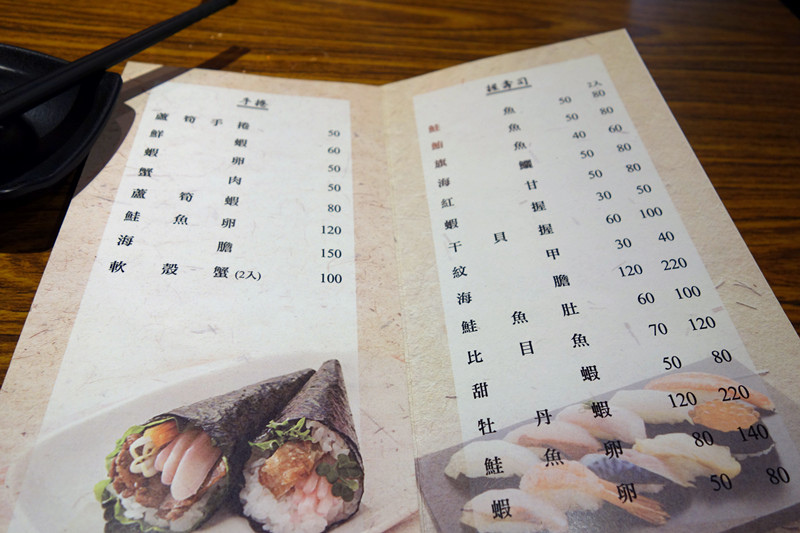 手捲
蘆筍手捲 50
鮮蝦 60
蝦卵 50
蟹肉 50
蘆筍蝦 80
鮭魚卵 120
海膽 150
軟殼蟹(2入) 100
握壽司
2入
鮭魚 50 80
鮪魚 50 80
旗魚 40 60
海鱺 50 80
紅甘 50 80
蝦握 30 50
干貝握 60 100
紋甲 30 40
海膽 120 220
鮭魚肚 60 100
比目魚 70 120
甜蝦 50 80
牡丹蝦 120 220
鮭魚卵 80 140
蝦卵 50 80